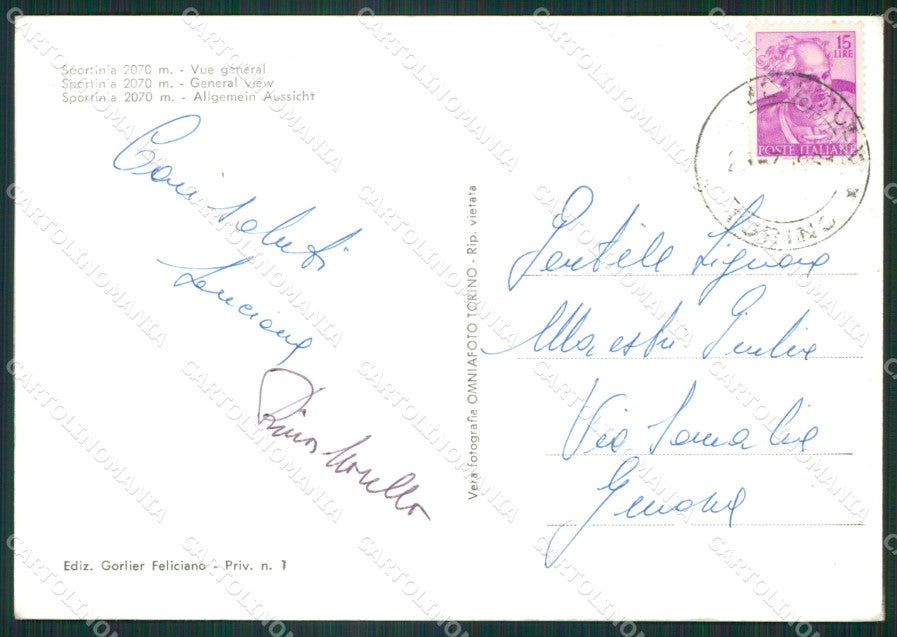 Sportinia 2070 m. - Vue general
Sportinia 2070 m. - General view
Sportinia 2070 m. - Allgemein Aussicht
Cari saluti
Luciana
Pino
Vera fotografia OMNIAFOTO TORINO - Rip. vietata
15
LIRE
POSTE ITALIANE
TORINO
Gentile Signora
Maestri Giulia
Via Somalia
Genova
Ediz. Gorlier Feliciano - Priv. n. 1
CARTOLINOMANIA